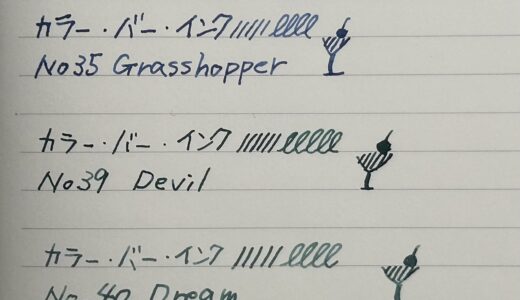 カラー・バー・インク
No35 Grasshopper
カラー・バー・インク
No39 Devil
カラー・バー・インク
No 40 Dream